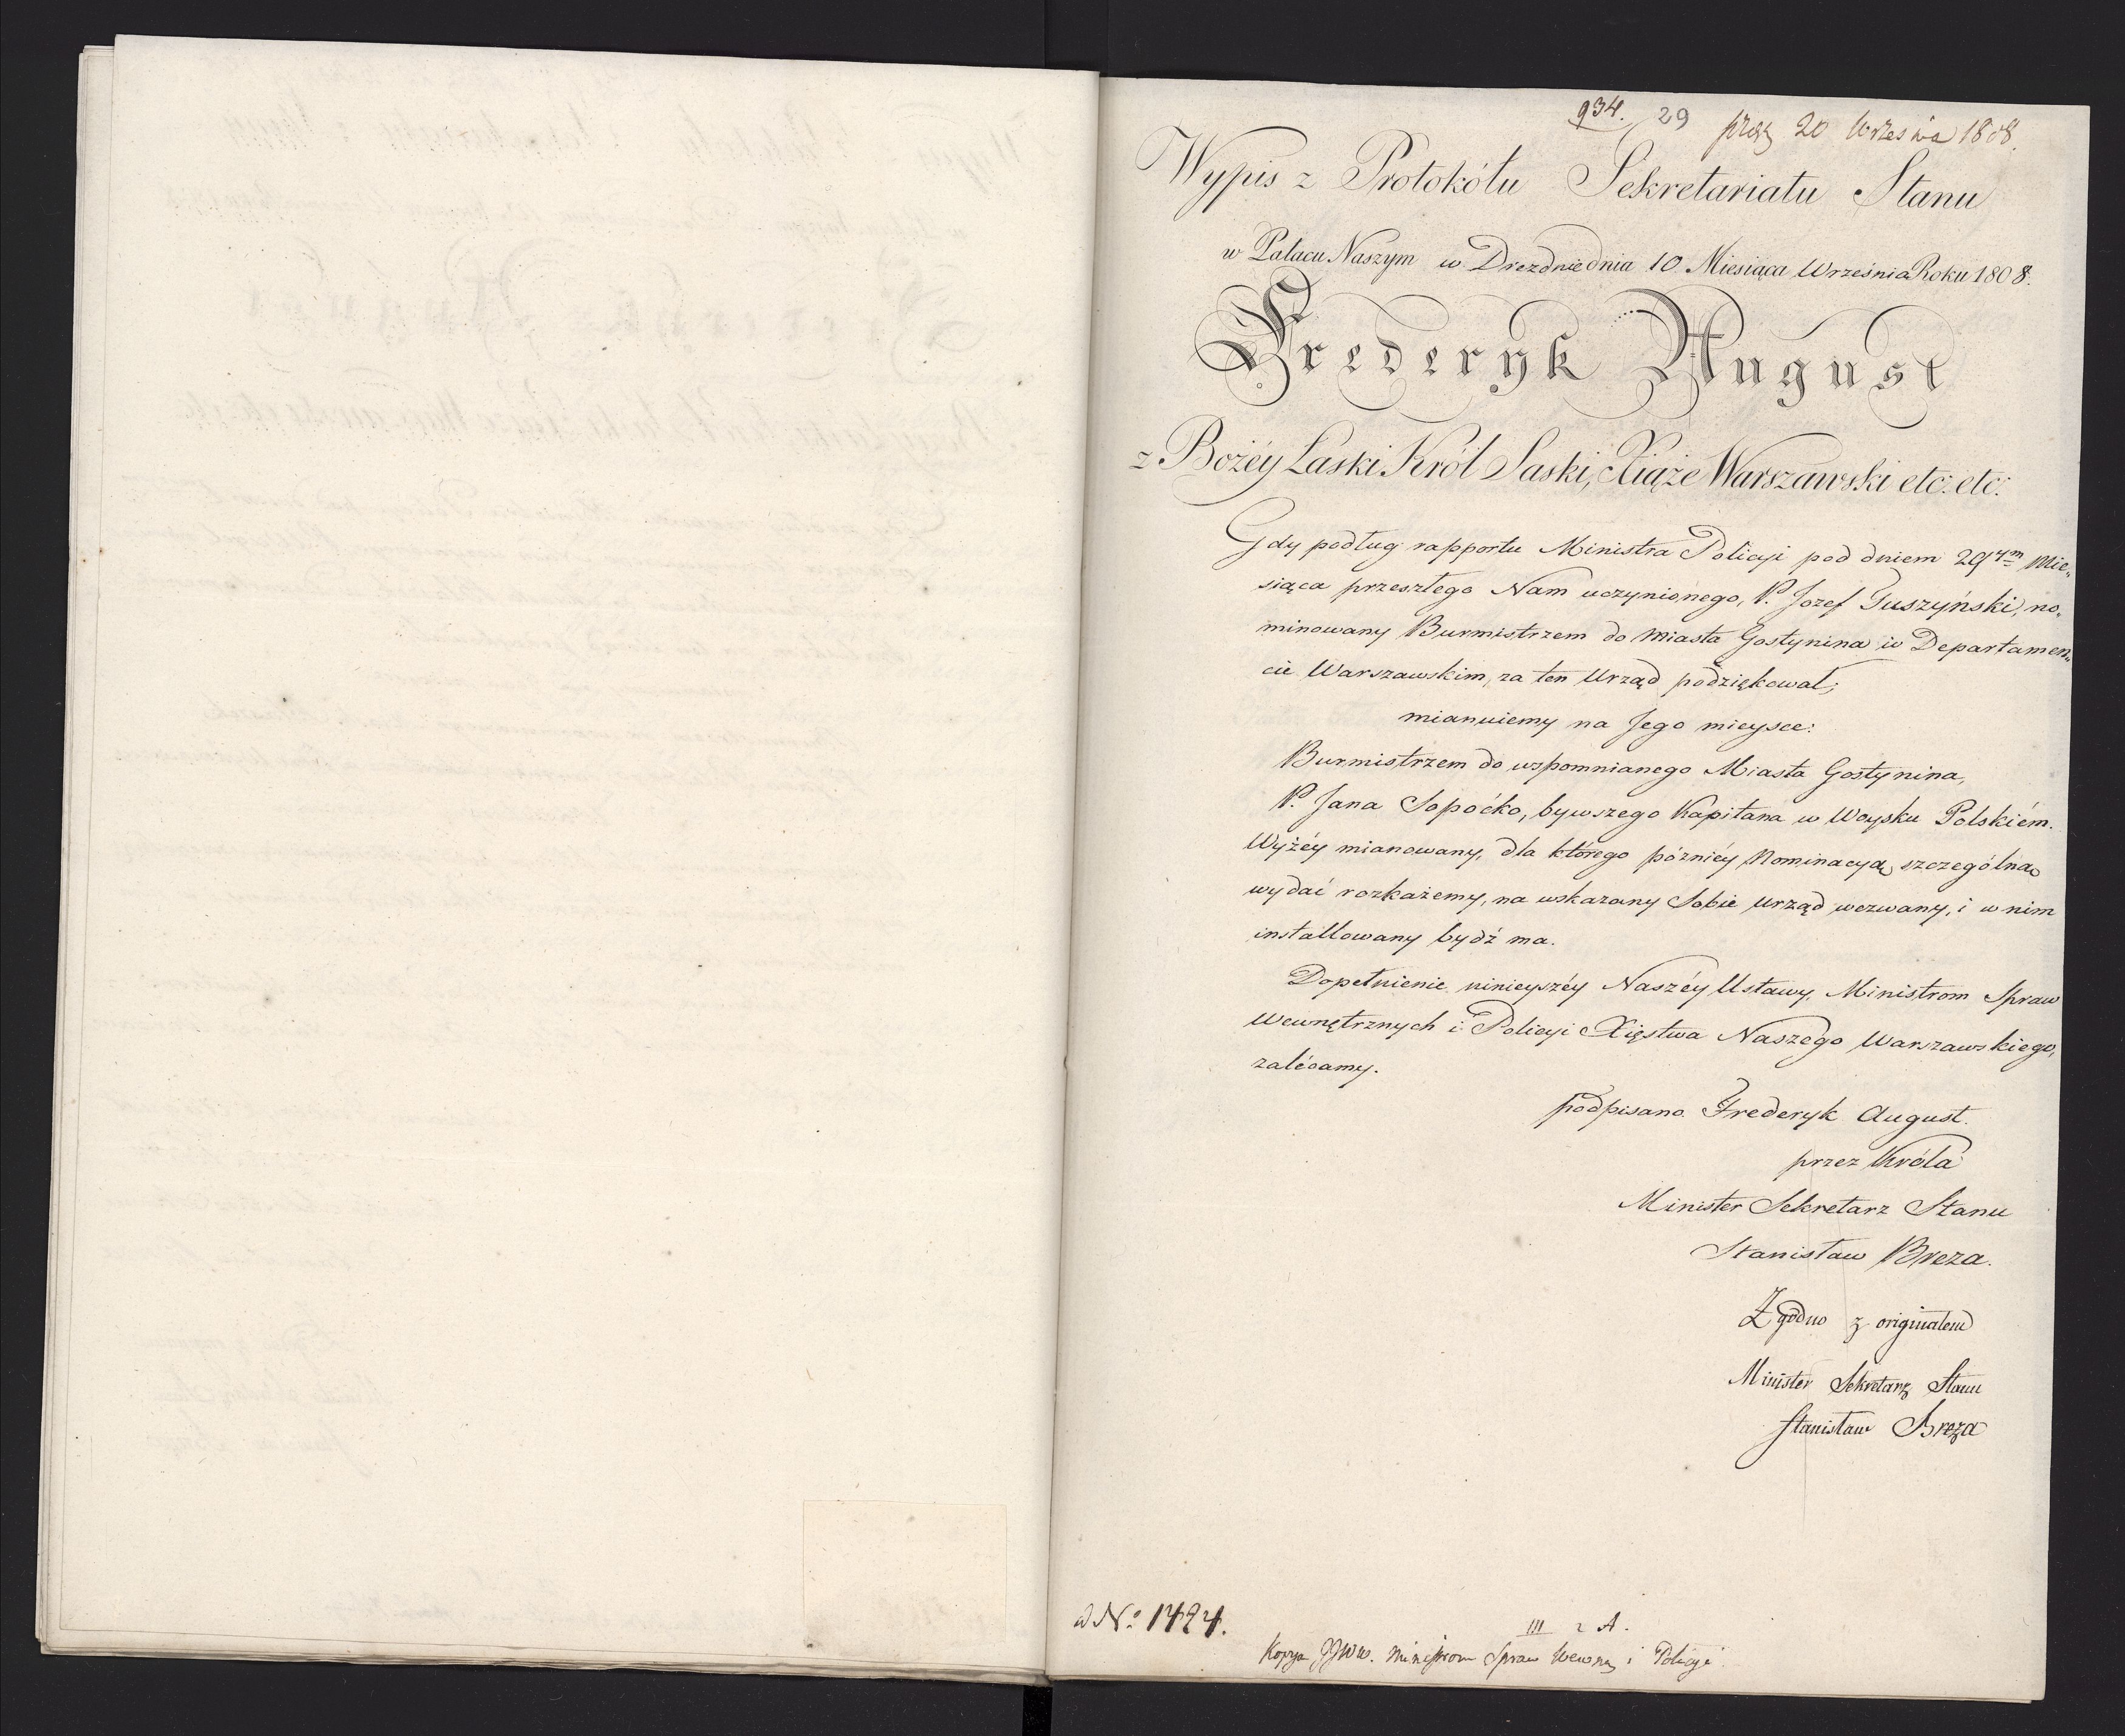 934. 29 prez 20 Września 1808.
Wypis z Protokółu Sekretariatu Stanu
w Pałacu Naszym w Dreznie dnia 10 Miesiąca Września Roku 1808.
Frederyk August
z Bożéy Łaski Król Saski, Xiąże Warszawski etc: etc:
Gdy podług rapportu Ministra Policyi pod dniem 29tym Mie„
siąca przeszłego Nam uczynionego, P. Jozef Guszyński, no„
minowany Burmistrzem do Miasta Gostynina w Departamen„
cie Warszawskim, za ten Urząd podziękował;
mianuiemy na Jego mieysce:
Burmistrzem do wspomnianego Miasta Gostynina,
P. Jana Sopoćko, bywszego Kapitana w Woysku Polskiém.
Wyżéy mianowany, dla którego póżniéy Nominacyą szczególną
wydać rozkażemy, na wskazany Sobie Urząd wezwany, i w nim
installowany bydź ma.
Dopełnienie ninieyszéy Naszéy Ustawy, Ministrom Spraw
Wewnętrznych i Policyi Xięstwa Naszego Warszawskiego,
zalécamy.
podpisano Frederyk August.
przez Króla
Minister Sekretarz Stanu
Stanisław Breza.
Zgodno z originałem
Minister Sekretarz Stanu
Stanisław Breza
ad No: 1424.
III 2 A.
Kopya JJWW. Ministrom Spraw Wewnę i Policyi